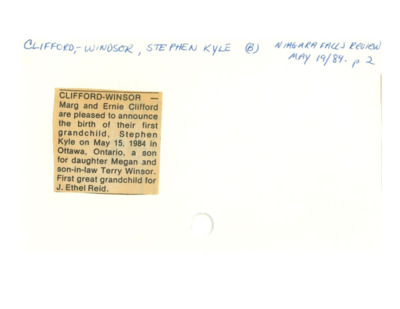 CLIFFORD,-WINDSOR, STEPHEN KYLE (B) NIAGARA FALLS REVIEW
MAY 19/84. p 2
CLIFFORD-WINSOR —
Marg and Ernie Clifford
are pleased to announce
the birth of their first
grandchild, Stephen
Kyle on May 15, 1984 in
Ottawa, Ontario, a son
for daughter Megan and
son-in-law Terry Winsor.
First great grandchild for
J. Ethel Reid.